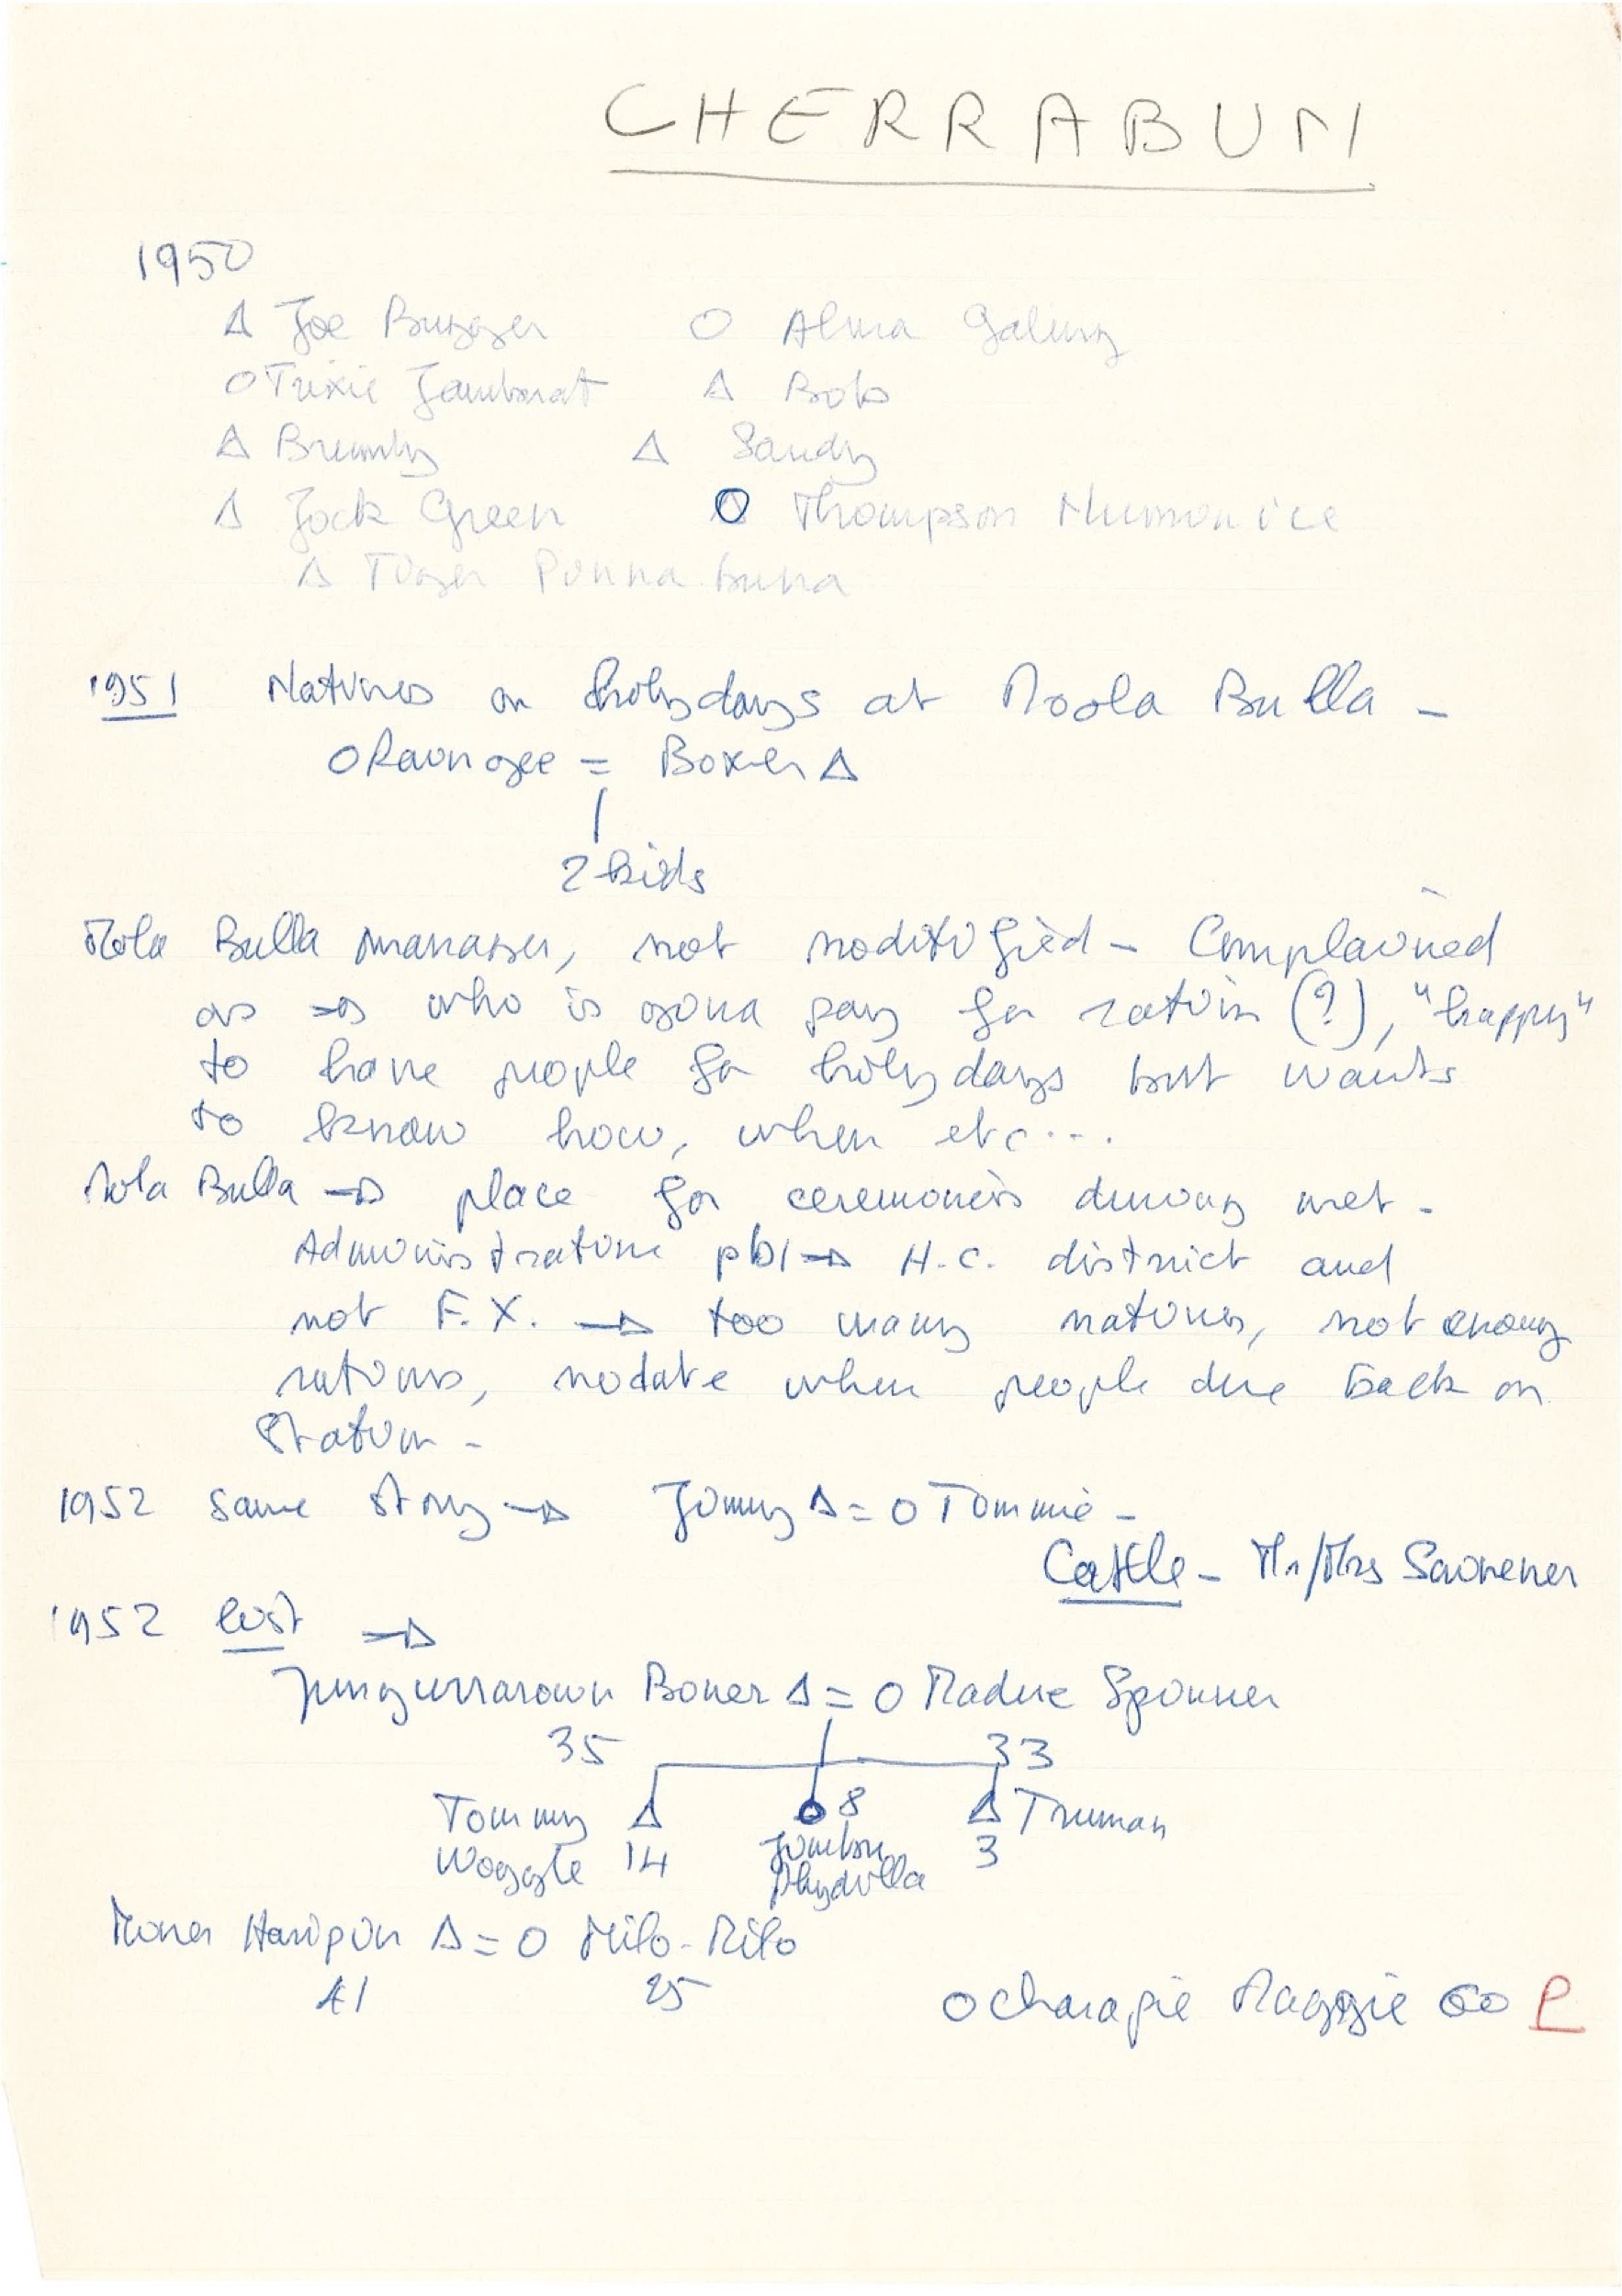 CHERRABUN
1950
Δ Joe Burgger O Alma Galung
O Trixie Jamborat Δ Bob
Δ Brumby Δ Sandy
Δ Jock Green O Thompson
Δ Tiger
1951 Natives on holydays at Moola Bulla -
O = Boxer Δ
2 kids
Mola Bulla manager, not noditified - Complained
as → who is gona pay for ration (?), "happy"
to have people for holydays but wants
to know how, when etc...
Mola Bulla → place for ceremonies during wet -
Administration pbl → H.C. district and
not F.X. → too many natives, not enoug
rations, nodate when people due back on
Station -
1952 same story → Jimmy Δ = O Tommie -
Cattle - Mr/Mrs
1952 list →
Boxer Δ = O Spinner
35 33
Tommy Δ O 8 Δ Truman
Woggle 14 3
Δ = O Milo-Milo
41 25
O Charagie Maggie 60 P